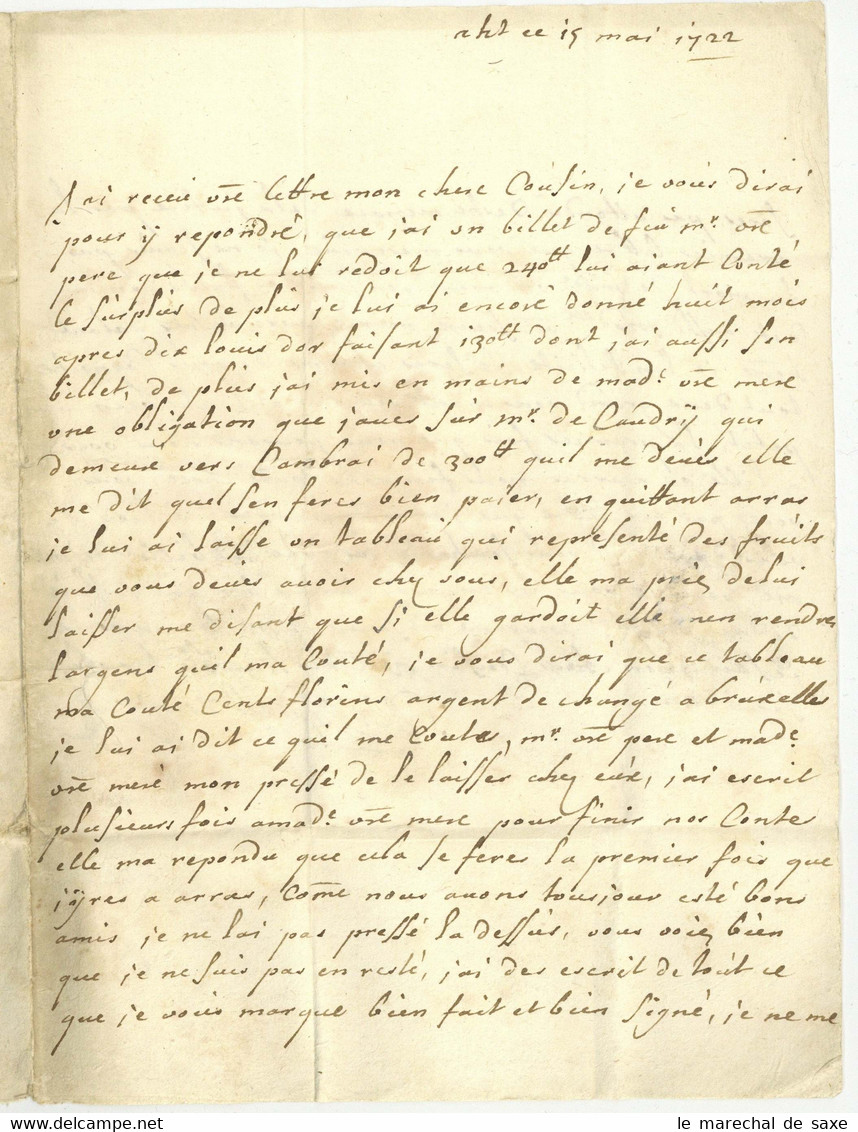 aht ce 15 mai 1722
J ai receu vre lettre mon chere Cousin, je vous dirai
pour ÿ repondre, que j'ai un billet de feu mr. vre
pere que je ne lui redoit que 240tt lui aiant Conté
le surplus de plus je lui ai encore donné huit mois
apres dix louis dor faisant 130tt dont j'ai aussi son
billet, de plus j'ai mis en mains de made. vre mere
une obligation que j'aves sur mr. de Caudrÿ qui
demeure vers Cambrai de 300tt quil me deves elle
me dit quel sen feres bien paier, en quittant arras
je lui ai laisse un tableau qui represente des fruits
que vous deves avoir chez vous, elle ma priez de lui
laisser me disant que si elle gardoit elle men rendres
largens quil ma Couté, je vous dirai que ce tableau
ma Couté Cents florins argent de change a bruxelles
je lui ai dit ce quil me Coutes, mr. vre pere et made.
vre mere mon pressé de le laisser chez eux, j'ai escrit
plusieurs fois a made. vre mere pour finir nos Contes
elle ma repondu que cela se feres la premier fois que
jÿres a arras, Cōme nous avons tousjour esté bons
amis je ne lai pas pressé la dessus, vous voiez bien
que je ne suis pas en resté, j'ai des escrit de tout ce
que je vous marque bien fait et bien signé, je ne me
le marechal de saxe